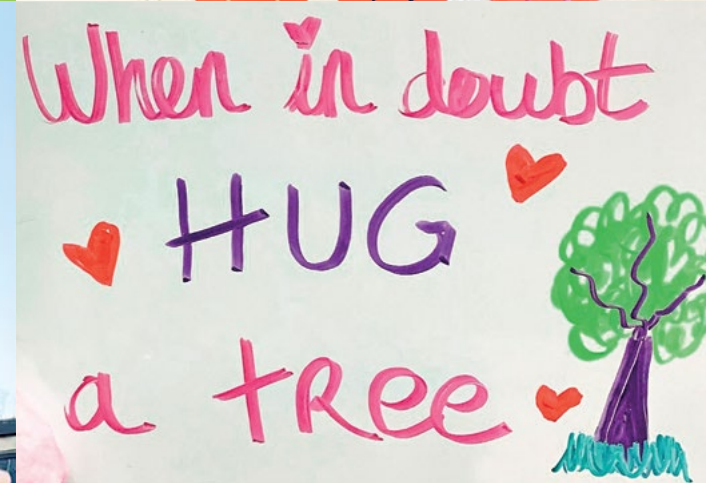 When in doubt
HUG
a tRee